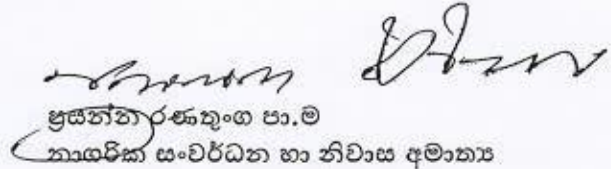 ප්‍රසන්න රණතුංග පා.ම
නාගරික සංවර්ධන හා නිවාස අමාත්‍ය